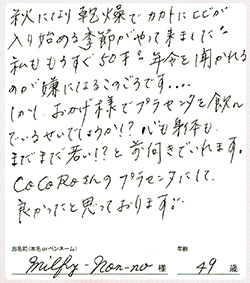 秋になり乾燥でカカトにヒビが
入り始める季節がやって来ました〃
私ももうすぐ50才〃年令を聞かれる
のが嫌になるこのごろです....
しかし、おかげ様でプラセンタを飲ん
でいるせいでしょうか!?心も身体も、
まだまだ若い!?と前向きでいれます。
CoCoRoさんのプラセンタにして
良かったと思っております〃
お名前(本名orペンネーム)
年齢
Milfy-Non-no 様
49 歳